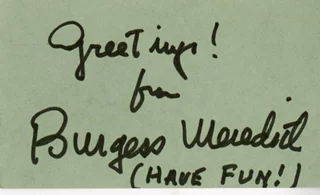 Greetings!
from
Burgess Meredith
(HAVE FUN!)